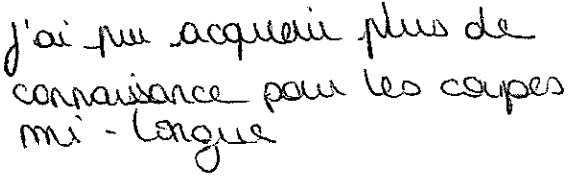 j'ai pu acquérir plus de
connaissance pour les coupes
mi-longue